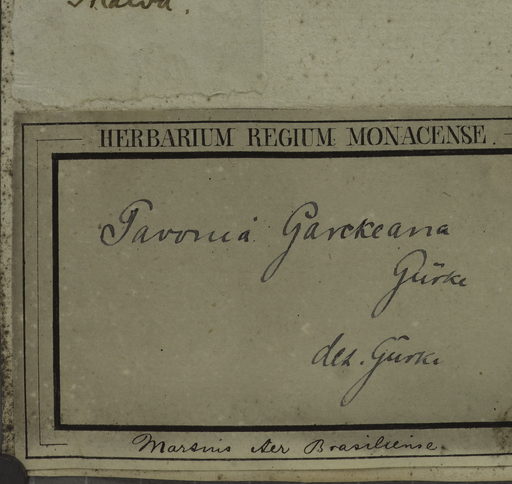 Malva.
HERBARIUM REGIUM MONACENSE.
Pavonia Garckeana
Gürke
det. Gürke
Martius Iter Brasiliense.